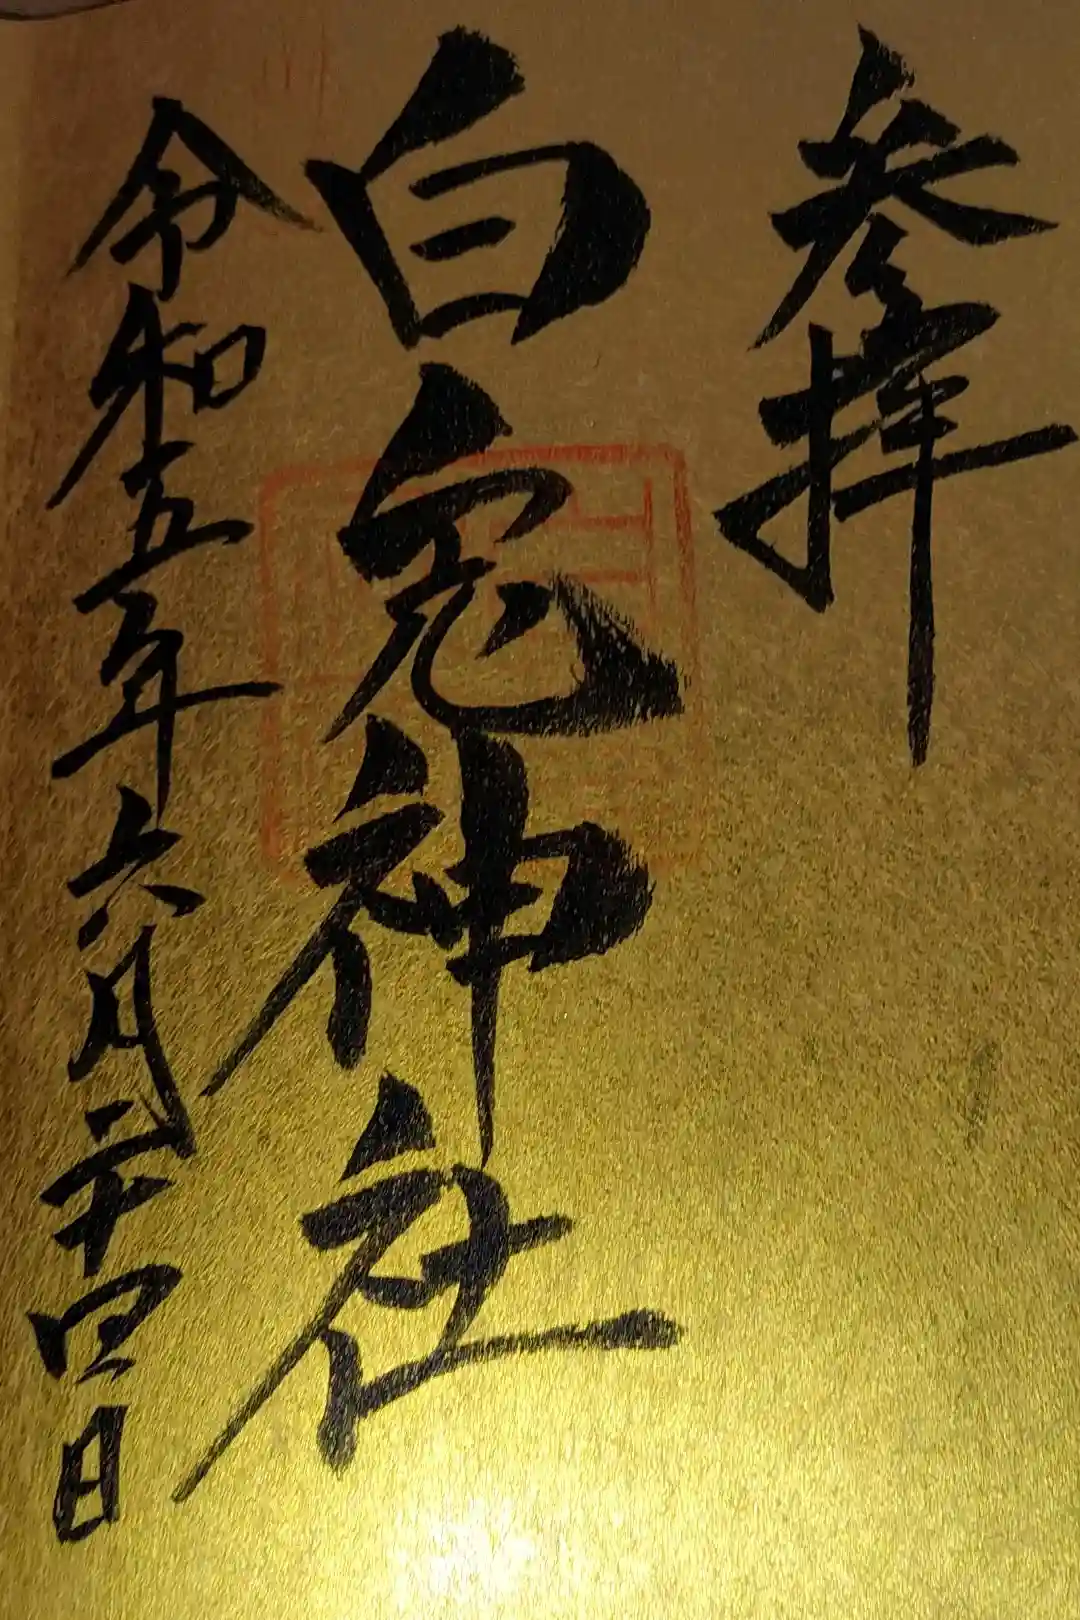 参拝
白兔神社
令和五年六月二十四日